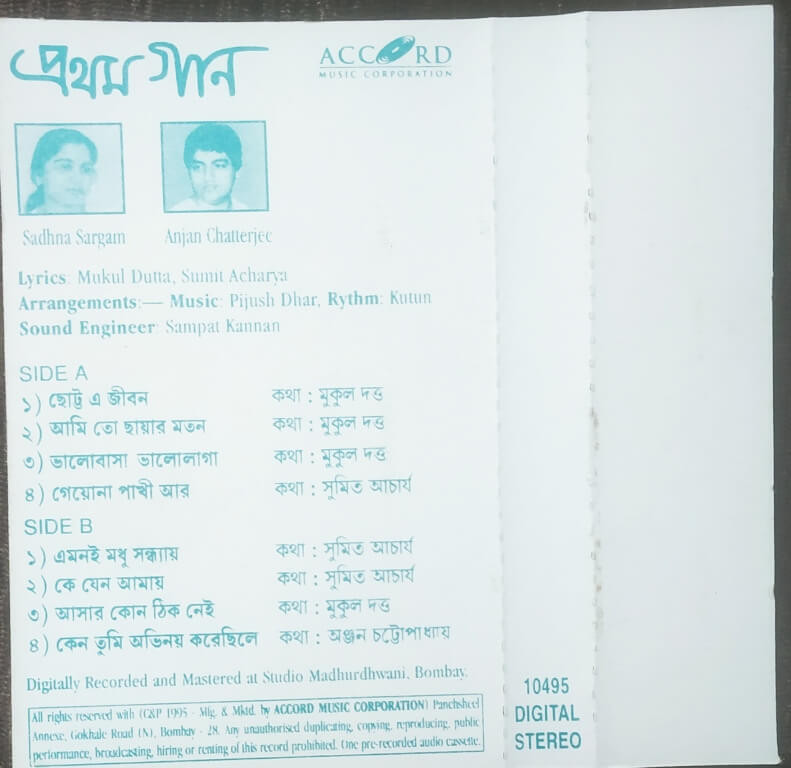 প্রথম গান
ACCORD
MUSIC CORPORATION
Sadhna Sargam
Anjan Chatterjee
Lyrics: Mukul Dutta, Sumit Acharya
Arrangements:— Music: Pijush Dhar, Rythm: Kutun
Sound Engineer: Sampat Kannan
SIDE A
১) ছোট্ট এ জীবন কথা : মুকুল দত্ত
২) আমি তো ছায়ার মতন কথা : মুকুল দত্ত
৩) ভালোবাসা ভালোলাগা কথা : মুকুল দত্ত
৪) গেয়োনা পাখী আর কথা : সুমিত আচার্য
SIDE B
১) এমনই মধু সন্ধ্যায় কথা : সুমিত আচার্য
২) কে যেন আমায় কথা : সুমিত আচার্য
৩) আসার কোন ঠিক নেই কথা : মুকুল দত্ত
৪) কেন তুমি অভিনয় করেছিলে কথা : অঞ্জন চট্টোপাধ্যায়
Digitally Recorded and Mastered at Studio Madhurdhwani, Bombay.
All rights reserved with (C&P 1995 - Mfg. & Mktd. by ACCORD MUSIC CORPORATION) Panchsheel
Annexe, Gokhale Road (N), Bombay - 28. Any unauthorised duplicating, copying, reproducing, public
performance, broadcasting, hiring or renting of this record prohibited. One pre-recorded audio cassette.
10495
DIGITAL
STEREO